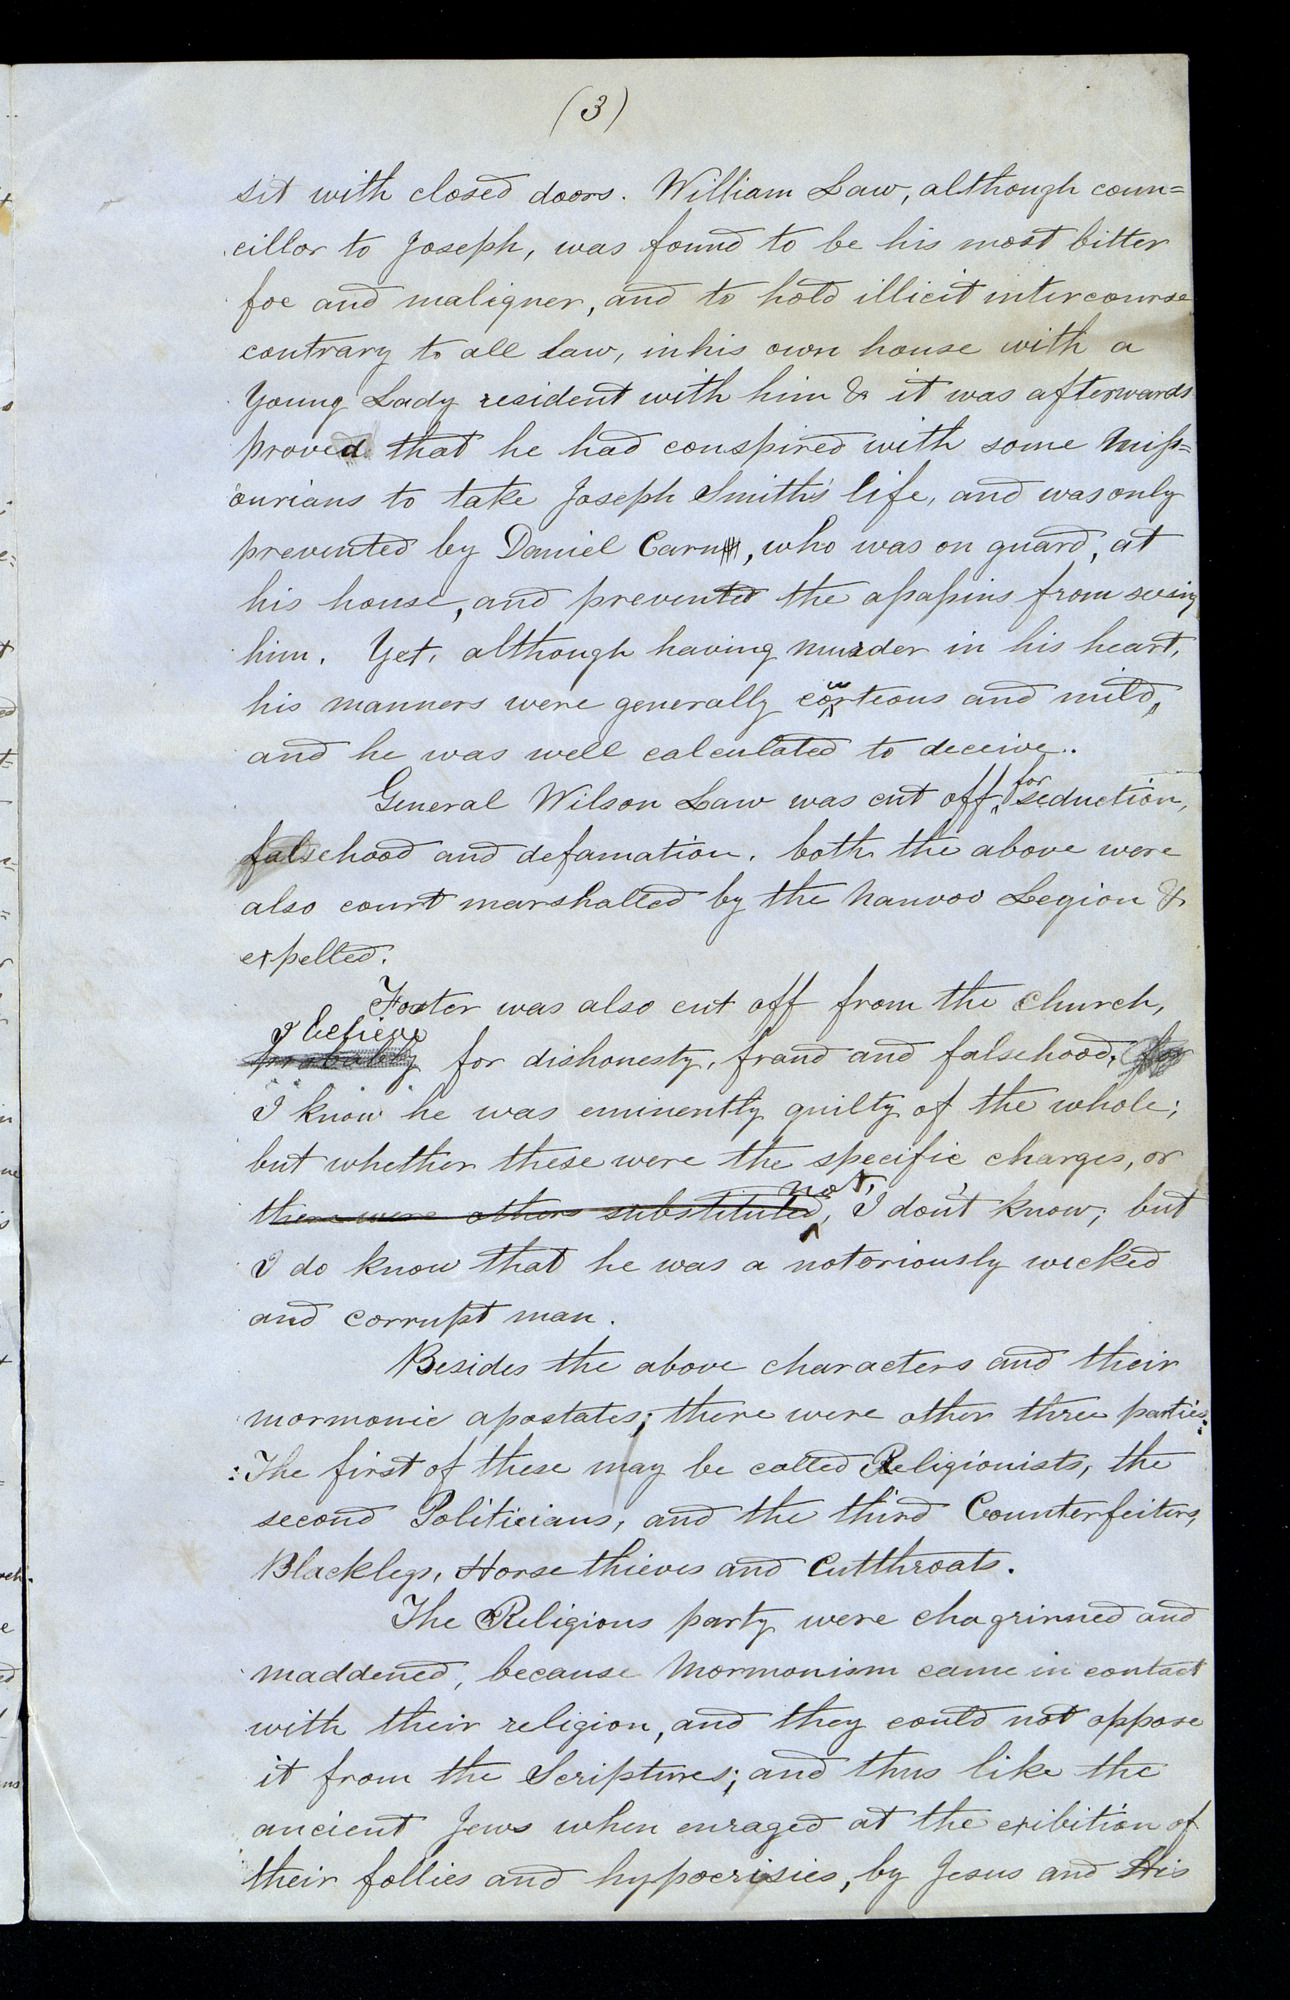 (3)
sit with closed doors. William Law, although coun=
cillor to Joseph, was found to be his most bitter
foe and maligner, and to hold illicit intercourse
contrary to all law, in his own house with a
Young Lady resident with him & it was afterwards
proved that he had conspired with some Miss=
ourians to take Joseph Smith's life, and was only
prevented by Daniel Carn, who was on guard, at
his house, and prevented the assassins from seeing
him. Yet, although having murder in his heart,
his manners were generally courteous and mild,
and he was well calculated to deceive.
General Wilson Law was cut off, for seduction,
falsehood and defamation. both the above were
also court marshalled by the Nauvoo Legion &
expelled.
Foster was also cut off from the church,
I believe
probably for dishonesty, fraud and falsehood, for
I know he was eminently guilty of the whole;
but whether these were the specific charges, or
there were others substituted, not, I don't know; but
I do know that he was a notoriously wicked
and corrupt man.
Besides the above characters and their
mormonic apostates; there were other three parties.
The first of these may be called Religionists, the
second Politicians, and the third Counterfeiters,
Blacklegs, Horse thieves and Cutthroats.
The Religious party were chagrinned and
maddened, because Mormonism came in contact
with their religion, and they could not oppose
it from the Scriptures; and thus like the
ancient Jews when enraged at the exibition of
their follies and hypocrisies, by Jesus and His